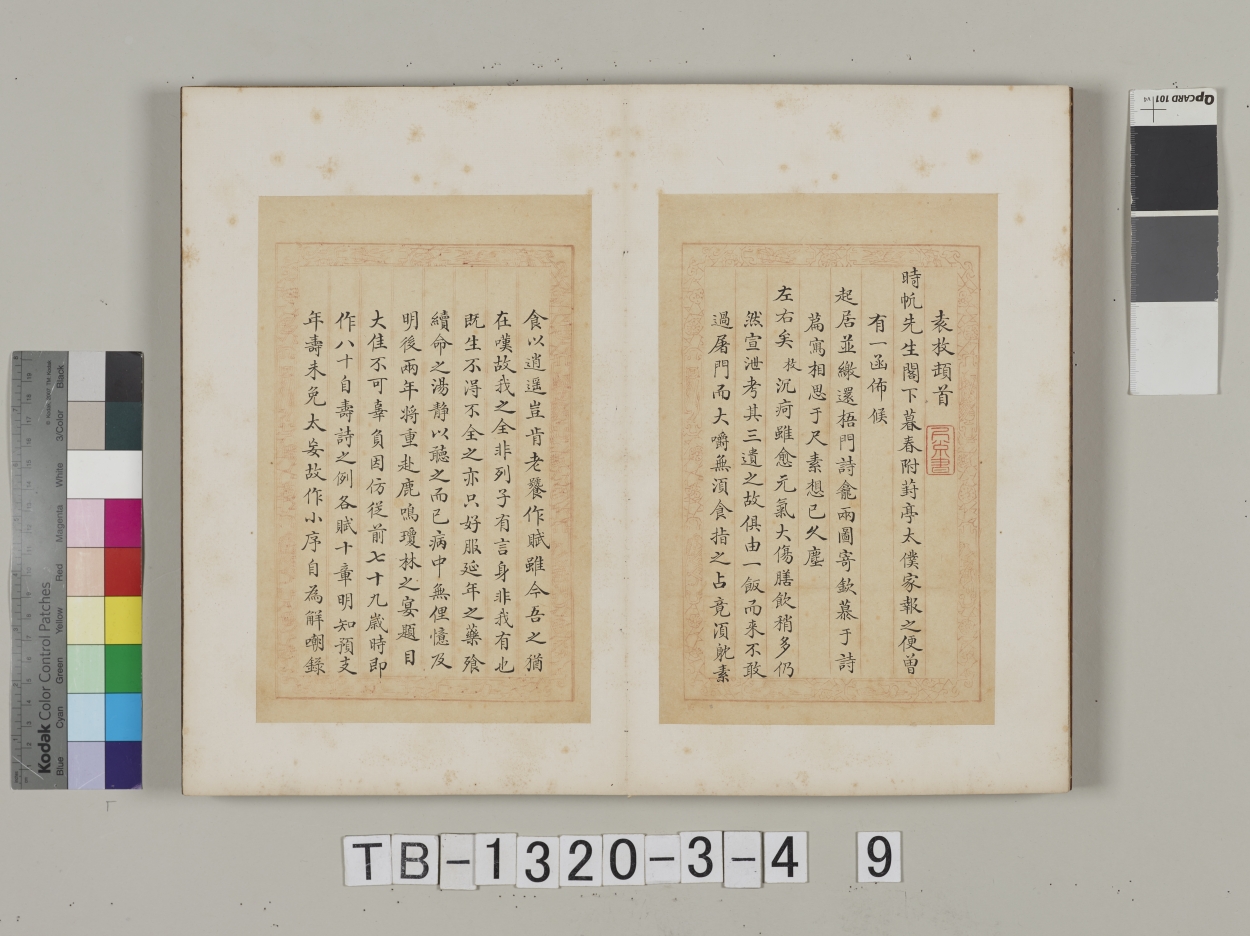 袁枚頓首
時帆先生閣下暮春附葑亭太僕家報之便曾
有一函佈候
起居並繳還梧門詩龕兩圖寄欽慕于詩
篇寫相思于尺素想已久塵
左右矣枚沉疴雖愈元氣大傷膳飲稍多仍
然宣泄考其三遺之故俱由一飯而來不敢
過屠門而大嚼無須食指之占竟須
素
食以逍遥豈肯老饕作賦雖今吾之猶
在嘆故我之全非列子有言身非我有也
既生不淂不全之亦只好服延年之藥飱
續命之湯静以聽之而已病中無俚憶及
明後兩年將重赴鹿鳴瓊林之宴題目
大佳不可辜負因仿從前七十九歲時即
作八十自壽詩之例各賦十章明知預支
年壽未免太妄故作小序自為解嘲錄
TB-1320-3-4 9
QPCARD 101 v4
Kodak Color Control Patches
Blue Cyan Green Yellow Red Magenta White 3/Color Black